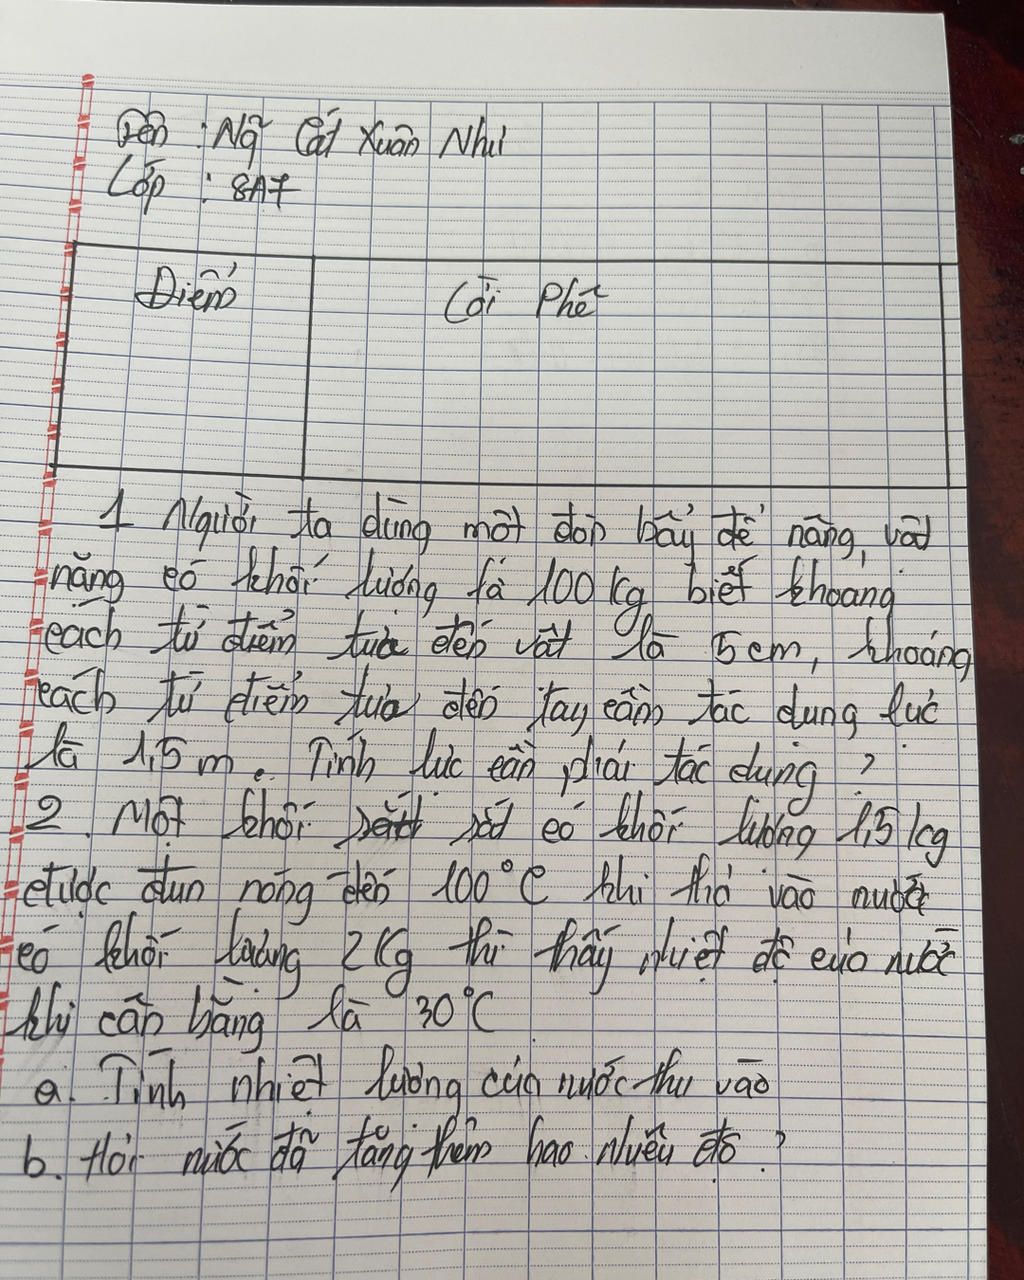 Tên : Ngô Cát Xuân Như
Lớp : 8A7
Điểm
Lời Phê
1 Người ta dùng một đòn bẩy để nâng, vật
nặng có khối lượng là 100 kg biết khoảng
cách từ điểm tựa đến vật là 5 cm, khoảng
cách từ điểm tựa đến tay cầm tác dụng lực
là 1,5 m. Tính lực cần phải tác dụng ?
2. Một khối sắt có khối lượng 1,5 kg
được đun nóng đến 100°C khi thả vào nước
có khối lượng 2 kg thì thấy nhiệt độ của nước
khi cân bằng là 30°C
a. Tính nhiệt lượng của nước thu vào
b. Hỏi nước đã tăng thêm bao nhiêu độ ?